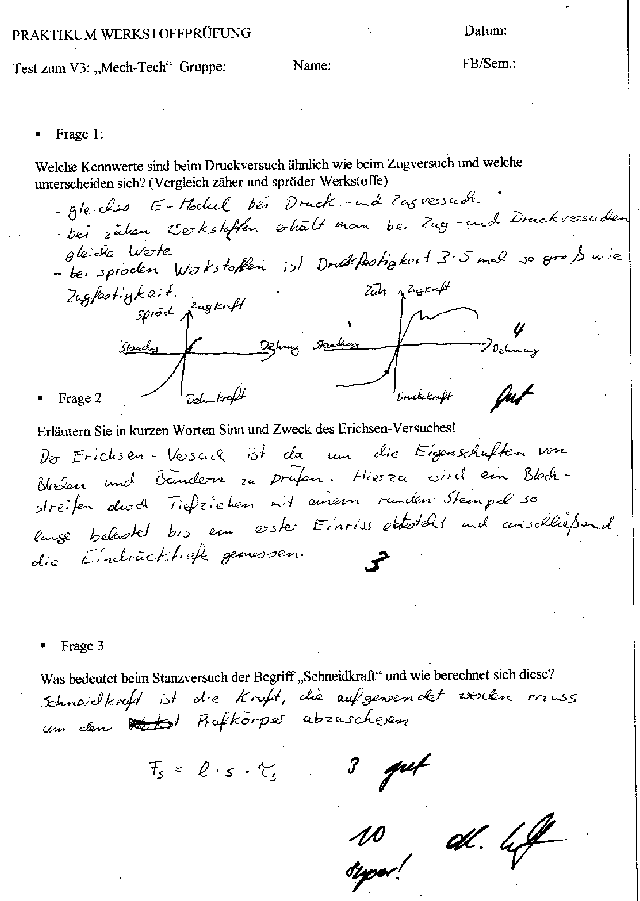 PRAKTIKUM WERKSTOFFPRÜFUNG Datum:
Test zum V3: „Mech-Tech“ Gruppe: Name: FB/Sem.:
▪ Frage 1:
Welche Kennwerte sind beim Druckversuch ähnlich wie beim Zugversuch und welche
unterscheiden sich? (Vergleich zäher und spröder Werkstoffe)
- gleiches E-Modul bei Druck- und Zugversuch
- bei zähen Werkstoffen erhält man bei Zug- und Druckversuchen
gleiche Werte
- bei spröden Werkstoffen ist Druckfestigkeit 3-5 mal so groß wie
Zugfestigkeit.
spröd Zugkraft Zäh Zugkraft
Stauchung Dehnung Stauchung Dehnung 4
Druckkraft
▪ Frage 2 gut
Erläutern Sie in kurzen Worten Sinn und Zweck des Erichsen-Versuches!
Der Erichsen-Versuch ist da um die Eigenschaften von
Blechen und Bändern zu prüfen. Hierzu wird ein Blech-
streifen durch Tiefziehen mit einem runden Stempel so
lange belastet bis ein erster Einriss entsteht und anschließend
die Eindrücktiefe gemessen. 3
▪ Frage 3
Was bedeutet beim Stanzversuch der Begriff „Schneidkraft“ und wie berechnet sich diese?
Schneidkraft ist die Kraft, die aufgewendet werden muss
um den Prüfkörper abzuscheren
Fs = l · s · τs 3 gut
10
Super!